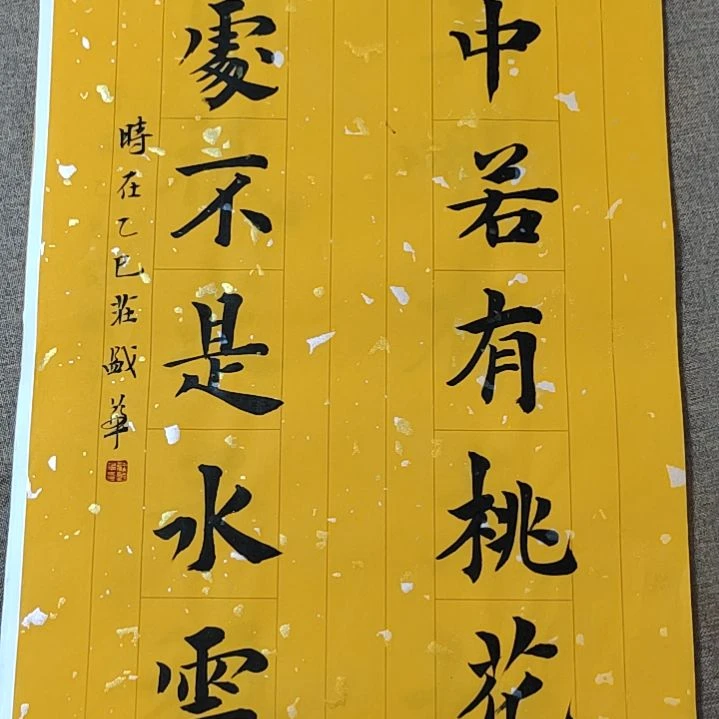 中若有桃花
處不是水雲
時在乙巳莊戲華